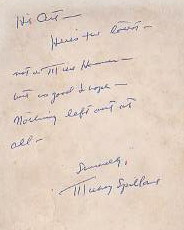 Hi Art—
Here's the lowdown—
not a Mike Hammer—
but as good I hope—
Nothing left out at
all—
Sincerely,
Mickey Spillane